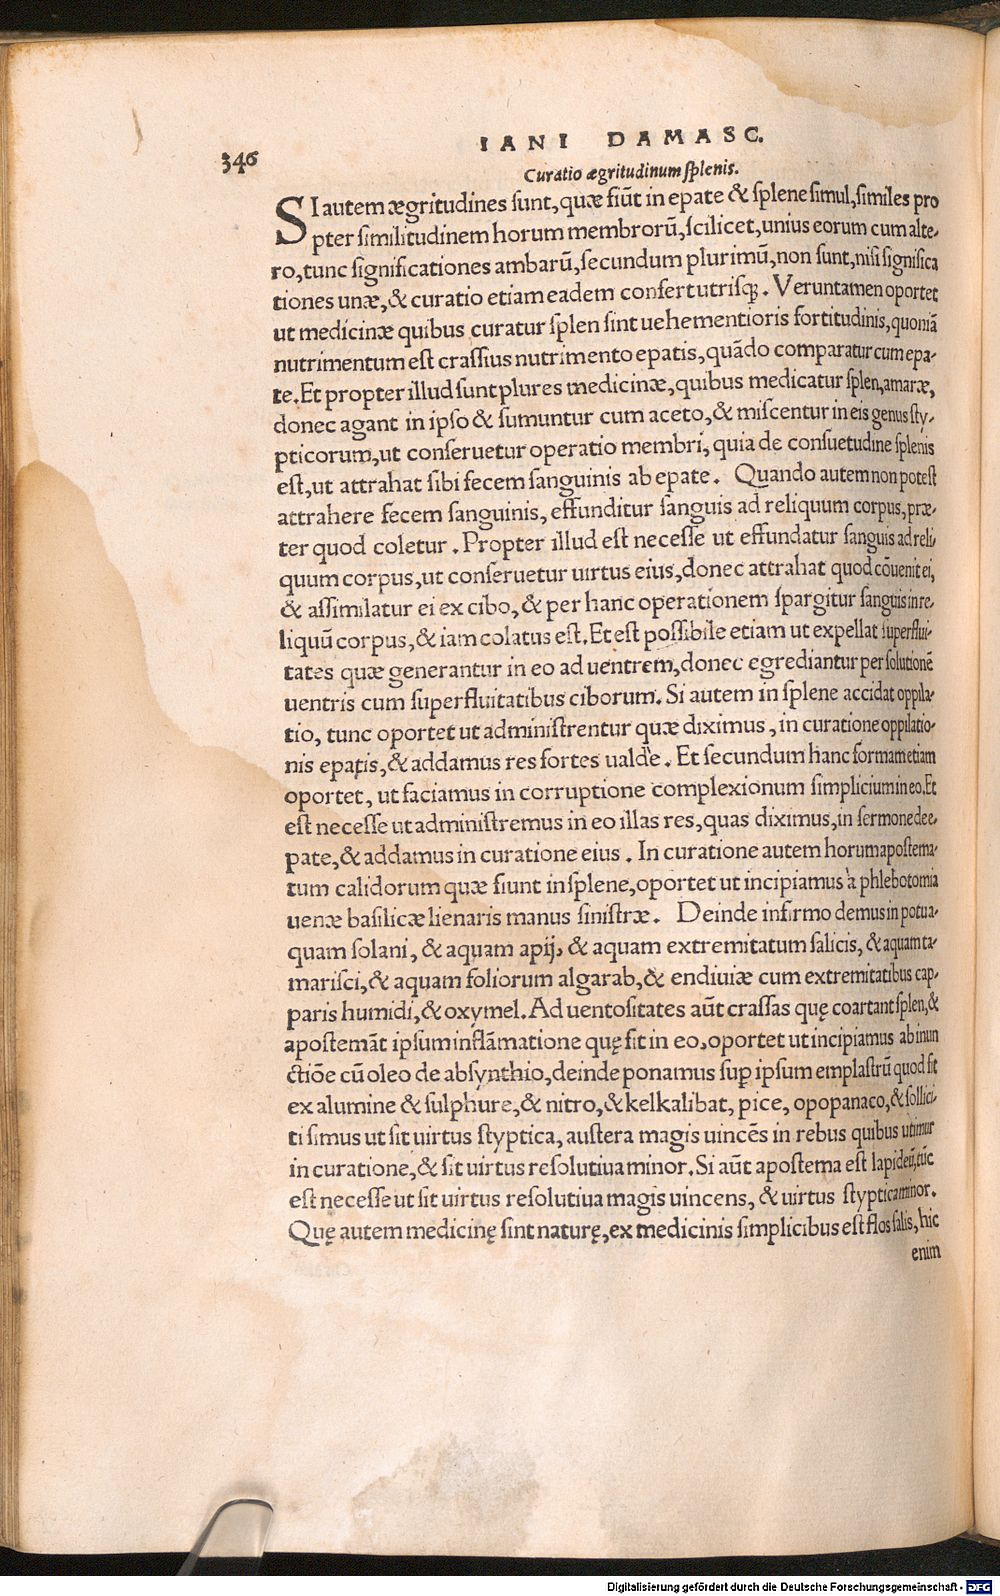 346
IANI DAMASC.
Curatio ægritudinum ſplenis.
SI autem ægritudines ſunt, quæ fiūt in epate & ſplene ſimul, ſimiles pro
pter ſimilitudinem horum membrorū, ſcilicet, unius eorum cum alte-
ro, tunc ſignificationes ambarū, ſecundum plurimū, non ſunt, niſi ſignifica
tiones unæ, & curatio etiam eadem confert utriſq;. Veruntamen oportet
ut medicinæ quibus curatur ſplen ſint uehementioris fortitudinis, quoniā
nutrimentum eſt craſſius nutrimento epatis, quādo comparatur cum epa-
te. Et propter illud ſunt plures medicinæ, quibus medicatur ſplen, amaræ,
donec agant in ipſo & ſumuntur cum aceto, & miſcentur in eis genus ſty-
pticorum, ut conſeruetur operatio membri, quia de conſuetudine ſplenis
eſt, ut attrahat ſibi fecem ſanguinis ab epate. Quando autem non poteſt
attrahere fecem ſanguinis, effunditur ſanguis ad reliquum corpus, præ-
ter quod coletur. Propter illud eſt neceſſe ut effundatur ſanguis ad reli-
quum corpus, ut conſeruetur uirtus eius, donec attrahat quod cōuenit ei,
& aſſimilatur ei ex cibo, & per hanc operationem ſpargitur ſanguis in re-
liquū corpus, & iam colatus eſt. Et eſt poſſibile etiam ut expellat ſuperflui-
tates quæ generantur in eo ad uentrem, donec egrediantur per ſolutionē
uentris cum ſuperfluitatibus ciborum. Si autem in ſplene accidat oppila-
tio, tunc oportet ut adminiſtrentur quæ diximus, in curatione oppilatio-
nis epatis, & addamus res fortes ualde. Et ſecundum hanc formam etiam
oportet, ut faciamus in corruptione complexionum ſimplicium in eo. Et
eſt neceſſe ut adminiſtremus in eo illas res, quas diximus, in ſermone de e-
pate, & addamus in curatione eius. In curatione autem horum apoſtema-
tum calidorum quæ fiunt in ſplene, oportet ut incipiamus à phlebotomia
uenæ baſilicæ lienaris manus ſiniſtræ. Deinde infirmo demus in potu a-
quam ſolani, & aquam apij, & aquam extremitatum ſalicis, & aquam ta-
mariſci, & aquam foliorum algarab, & endiuiæ cum extremitatibus cap-
paris humidi, & oxymel. Ad uentoſitates aūt craſſas quę coartant ſplen, &
apoſtemāt ipſum inflāmatione quę fit in eo, oportet ut incipiamus ab inun
ctiōe cū oleo de abſynthio, deinde ponamus sup ipſum emplaſtrū quod fit
ex alumine & ſulphure, & nitro, & kelkalibat, pice, opopanaco, & ſollici-
ti ſimus ut ſit uirtus ſtyptica, auſtera magis uincēs in rebus quibus utimur
in curatione, & ſit uirtus reſolutiua minor. Si aūt apoſtema eſt lapideū, tūc
eſt neceſſe ut ſit uirtus reſolutiua magis uincens, & uirtus ſtyptica minor.
Quę autem medicinę ſint naturę, ex medicinis ſimplicibus eſt flos ſalis, hic
enim
Digitalisierung gefördert durch die Deutsche Forschungsgemeinschaft - DFG